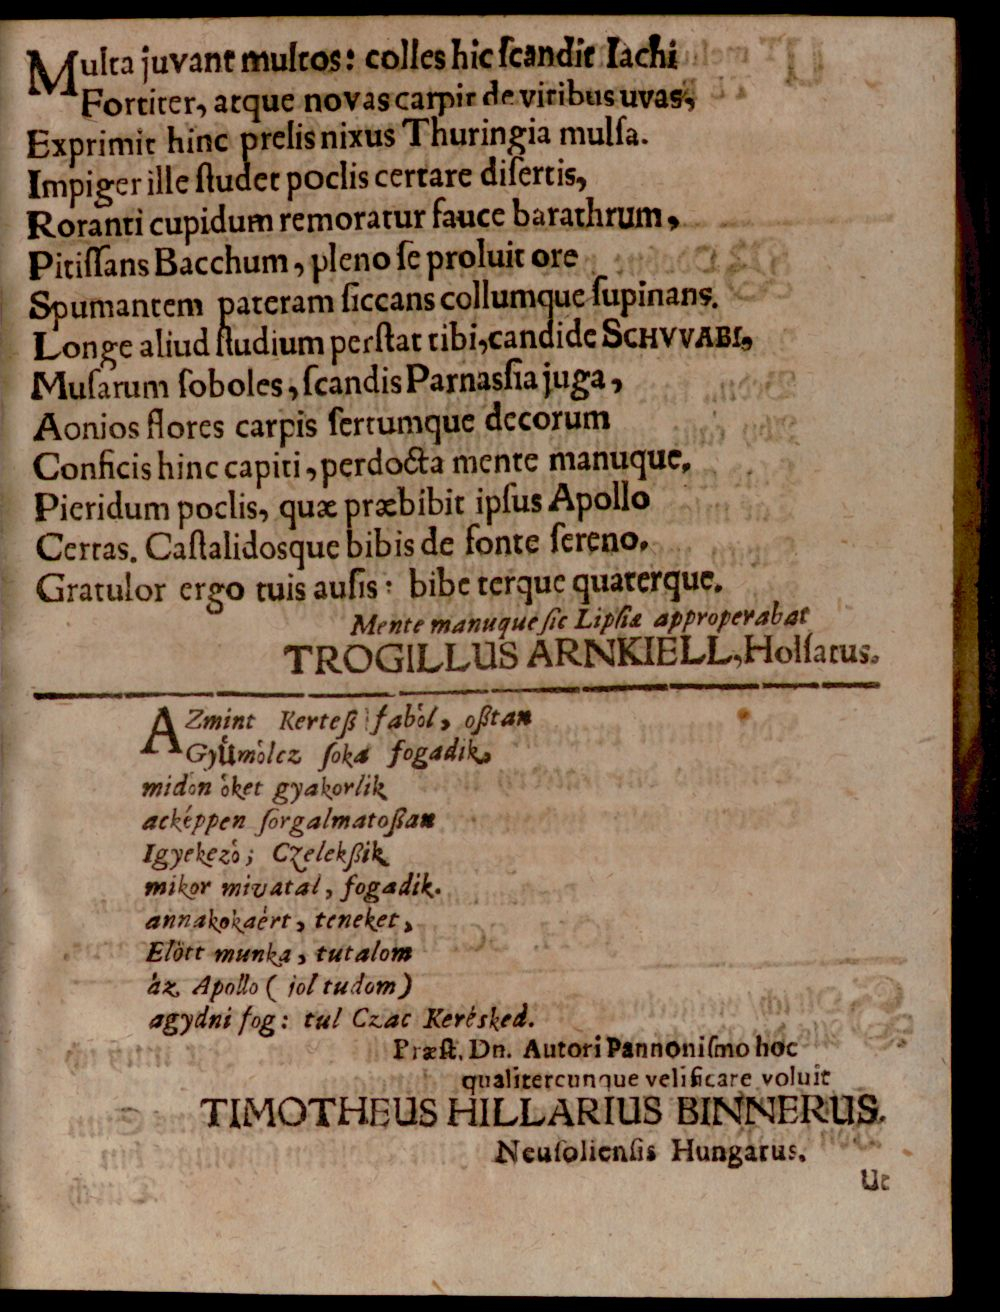 Multa juvant multos: colles hic ſcandit Iachi
Fortiter, atque novas carpit de vitibus uvas,
Exprimit hinc prelis nixus Thuringia mulſa.
Impiger ille ſtudet poclis certare diſertis,
Roranti cupidum remoratur fauce barathrum,
Pitiſſans Bacchum, pleno ſe proluit ore
Spumantem pateram ſiccans collumque ſupinans.
Longe aliud ſtudium perſtat tibi, candide SCHVVABI,
Muſarum ſoboles, ſcandis Parnasſia juga,
Aonios flores carpis ſertumque decorum
Conficis hinc capiti, perdocta mente manuque.
Pieridum poclis, quæ præbibit ipſus Apollo
Certas. Caſtalidosque bibis de fonte ſereno.
Gratulor ergo tuis auſis: bibe terque quaterque.
Mente manuque ſic Lipſiæ approperabat
TROGILLUS ARNKIELL, Holſatus.
AZmint Kerteß fabòl, oßtan
Gyůmòlcz ſoka fogadik,
midòn òket gyakorlik
acképpen ſorgalmatoßan
Igyekezò; Czelekßik
mikor mivatal, fogadik.
annakokaért, teneket,
Elòtt munka, tutalom
àz, Apollo ( jol tudom)
agydni fog: tul Czac Kerésked.
Præſt. Dn. Autori Pannoniſmo hoc
qualitercunque velificare voluit
TIMOTHEUS HILLARIUS BINNERUS.
Neuſolienſis Hungarus.
Ut